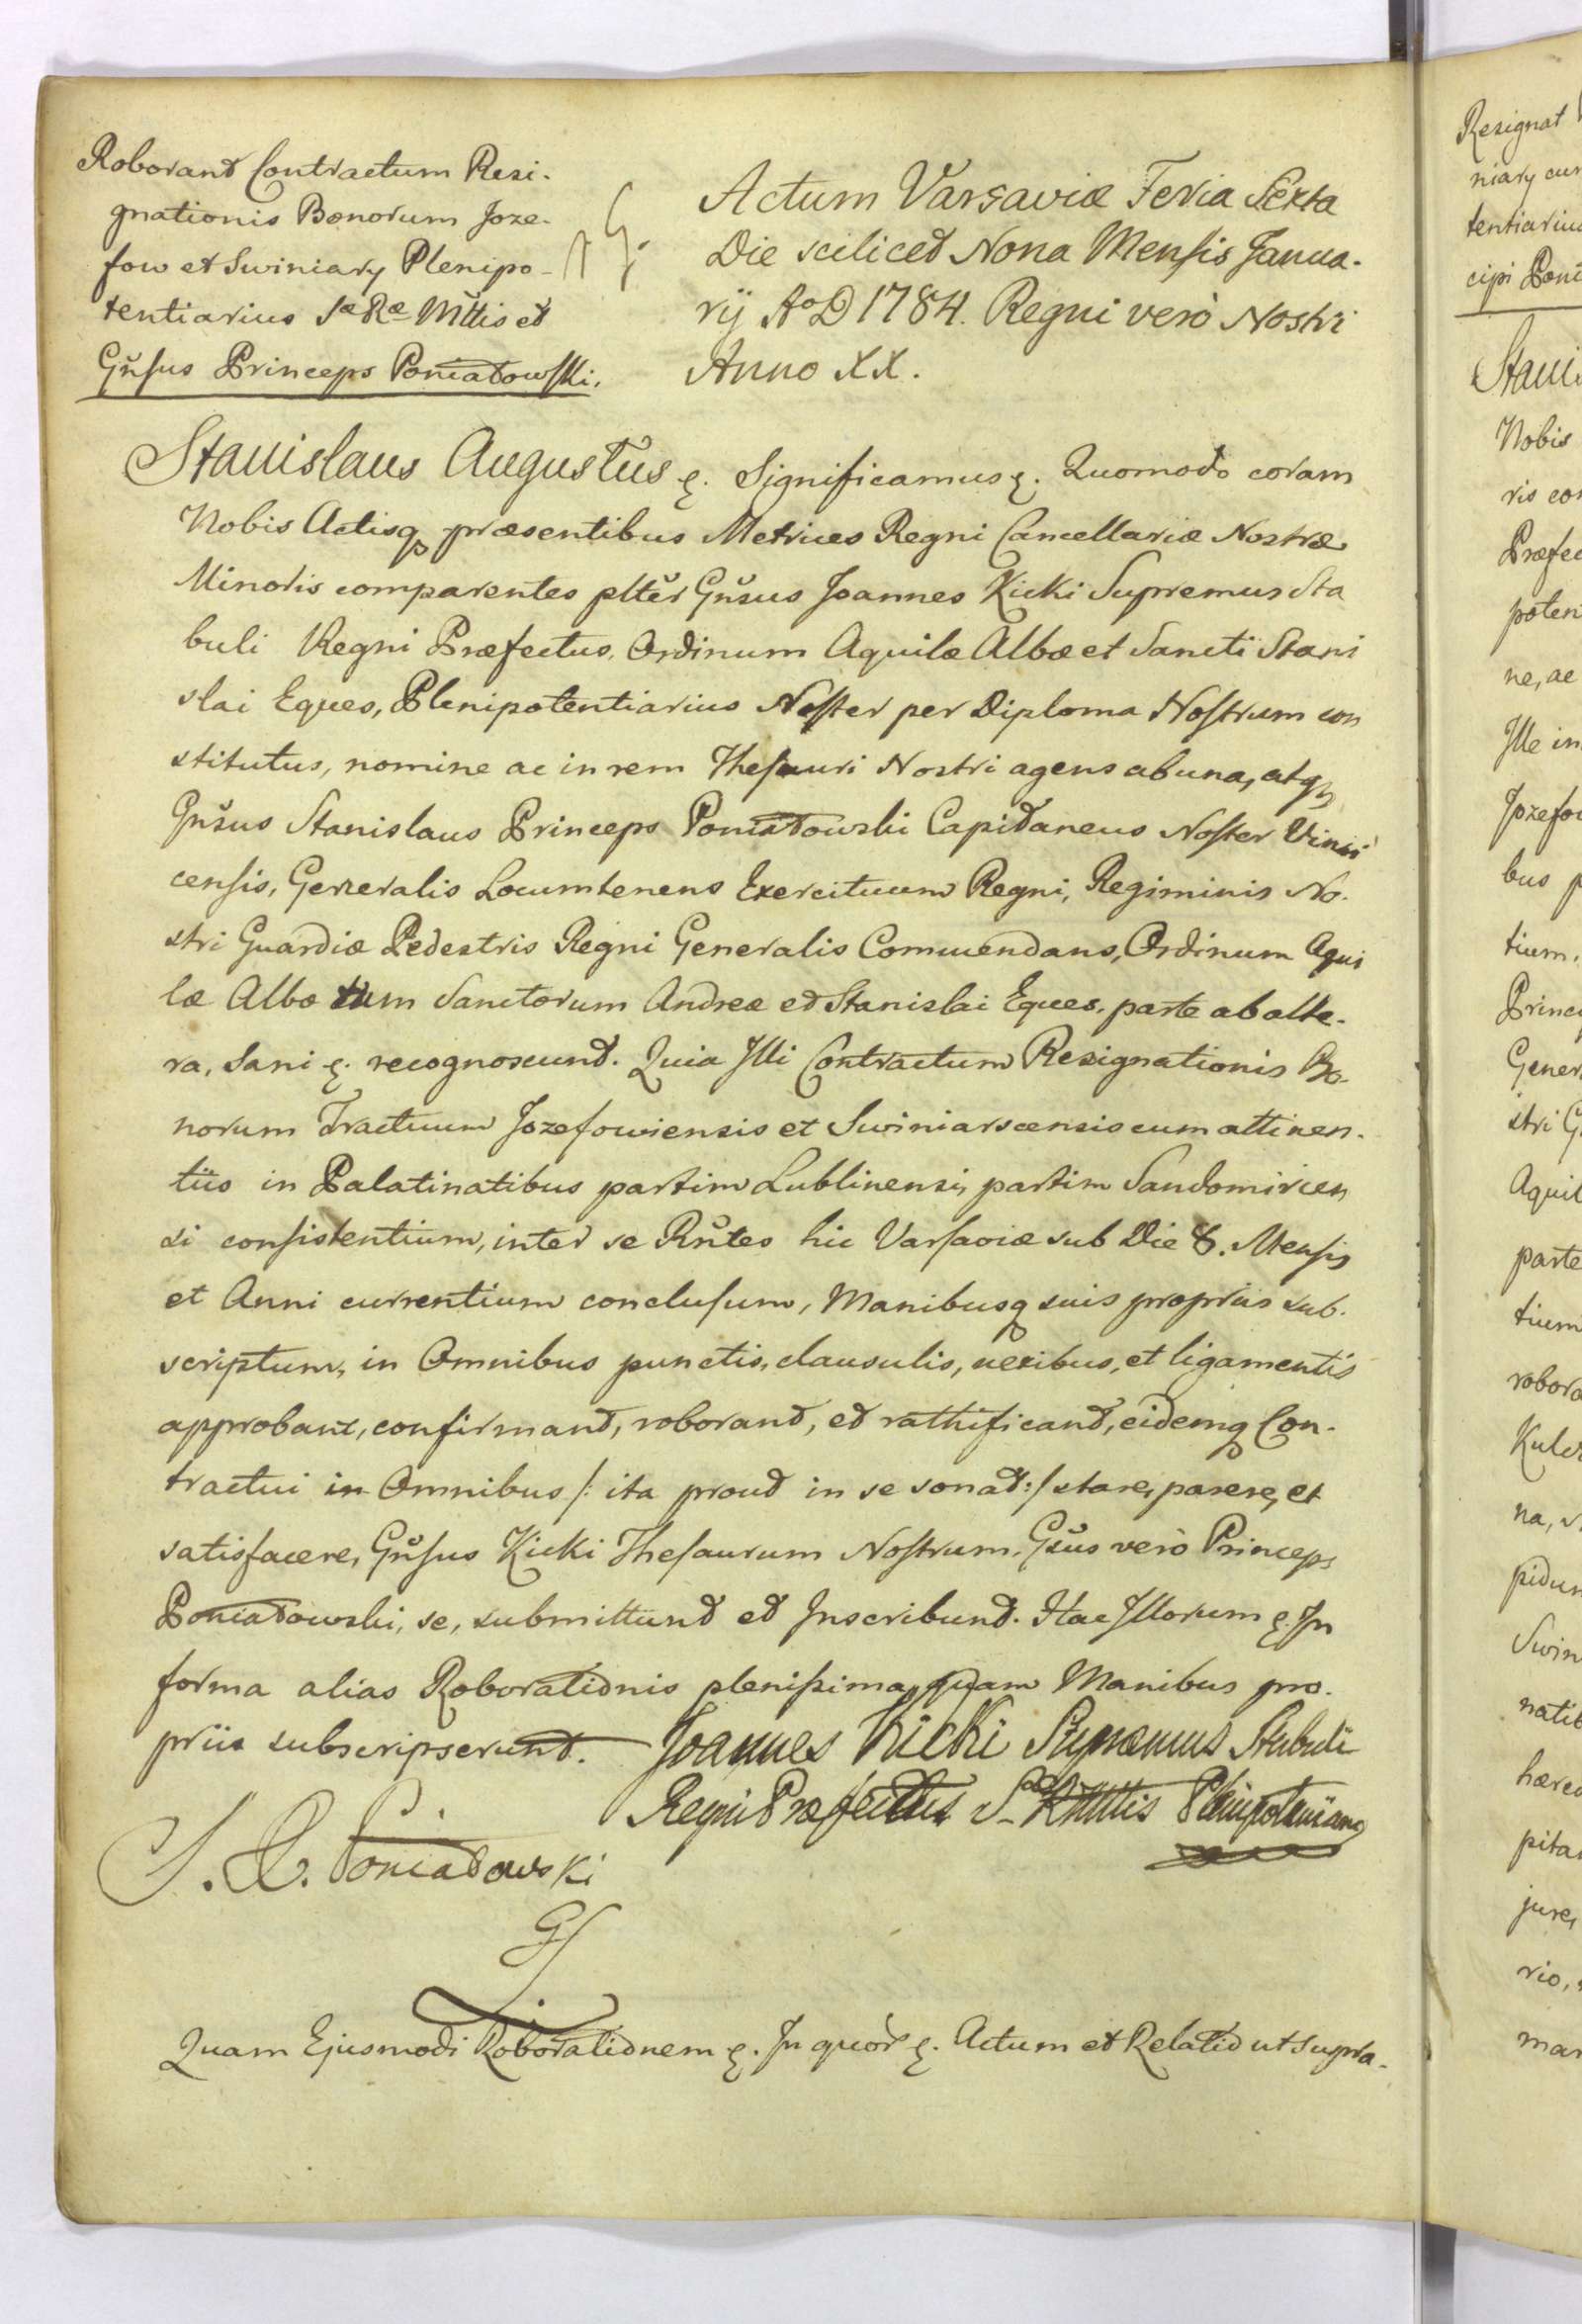 Roborant Contractum Resi-
gnationis Bonorum Joze-
fow et Swiniary Plenipo-
tentiarius Sæ Ræ Mttis et
Gnsus Princeps Poniatowski.
Actum Varsaviæ Feria Sexta
Die scilicet Nona Mensis Janua-
rij Ao D 1784. Regni verò Nostri
Anno XX.
Stanislaus Augustus &. Significamus &. Quomodo coram
Nobis Actisq præsentibus Metrices Regni Cancellariæ Nostræ
Minoris comparentes plter Gnsus Joannes Kicki Supremus Sta
buli Regni Præfectus, Ordinum Aquilæ Albæ et Sancti Stani
slai Eques, Plenipotentiarius Noster per Diploma Nostrum con
stitutus, nomine ac in rem Thesauri Nostri agens ab una, atq
Gnsus Stanislaus Princeps Poniatowski Capitaneus Noster
censis, Generalis Locumtenens Exercituum Regni, Regiminis No-
stri Guardiæ Pedestris Regni Generalis Commendans, Ordinum Aqui
læ Albæ tum Sanctorum Andreæ et Stanislai Eques, parte ab alte-
ra, Sani &. recognoscunt. Quia Illi Contractum Resignationis Bo-
norum Tractuum Jozefowiensis et Swiniarscensis cum attinen-
tiis in Palatinatibus partim Lublinensi, partim Sandomirien
si consistentium, inter se Rntes hic Varsaviæ sub Die 8. Mensis
et Anni currentium conclusum, Manibusq suis propriis sub-
scriptum, in Omnibus punctis, clausulis, nexibus, et ligamentis
approbant, confirmant, roborant, et rathificant, eidemq Con-
tractui in Omnibus /: ita prout in se sonat :/ stare, parere, et
satisfacere, Gnsus Kicki Thesaurum Nostrum, Gsus verò Princeps
Poniatowski, se, submittunt et Inscribunt. Hac Illorum &. In
forma alias Roborationis plenissima, quam Manibus pro-
priis subscripserunt. Joannes Kicki Supræmus Stabuli
Regni Præfectus S R Mttis Plenipotentiarius
S. P. Poniatowski
Quam Ejusmodi Roborationem &. In quor &. Actum et Relatio ut supra.
Resignat
niary cum
tentiarius
cipi Poni
Stani
Nobis
ris com
Præfec
poten
ne, ac
Ille in
Jozefow
bus p
tium.
Princ
Gener
stri G
Aquil
parte
tium
robora
na, s
pidum
Swin
natib
hæred
pita
jure,
rio,
man